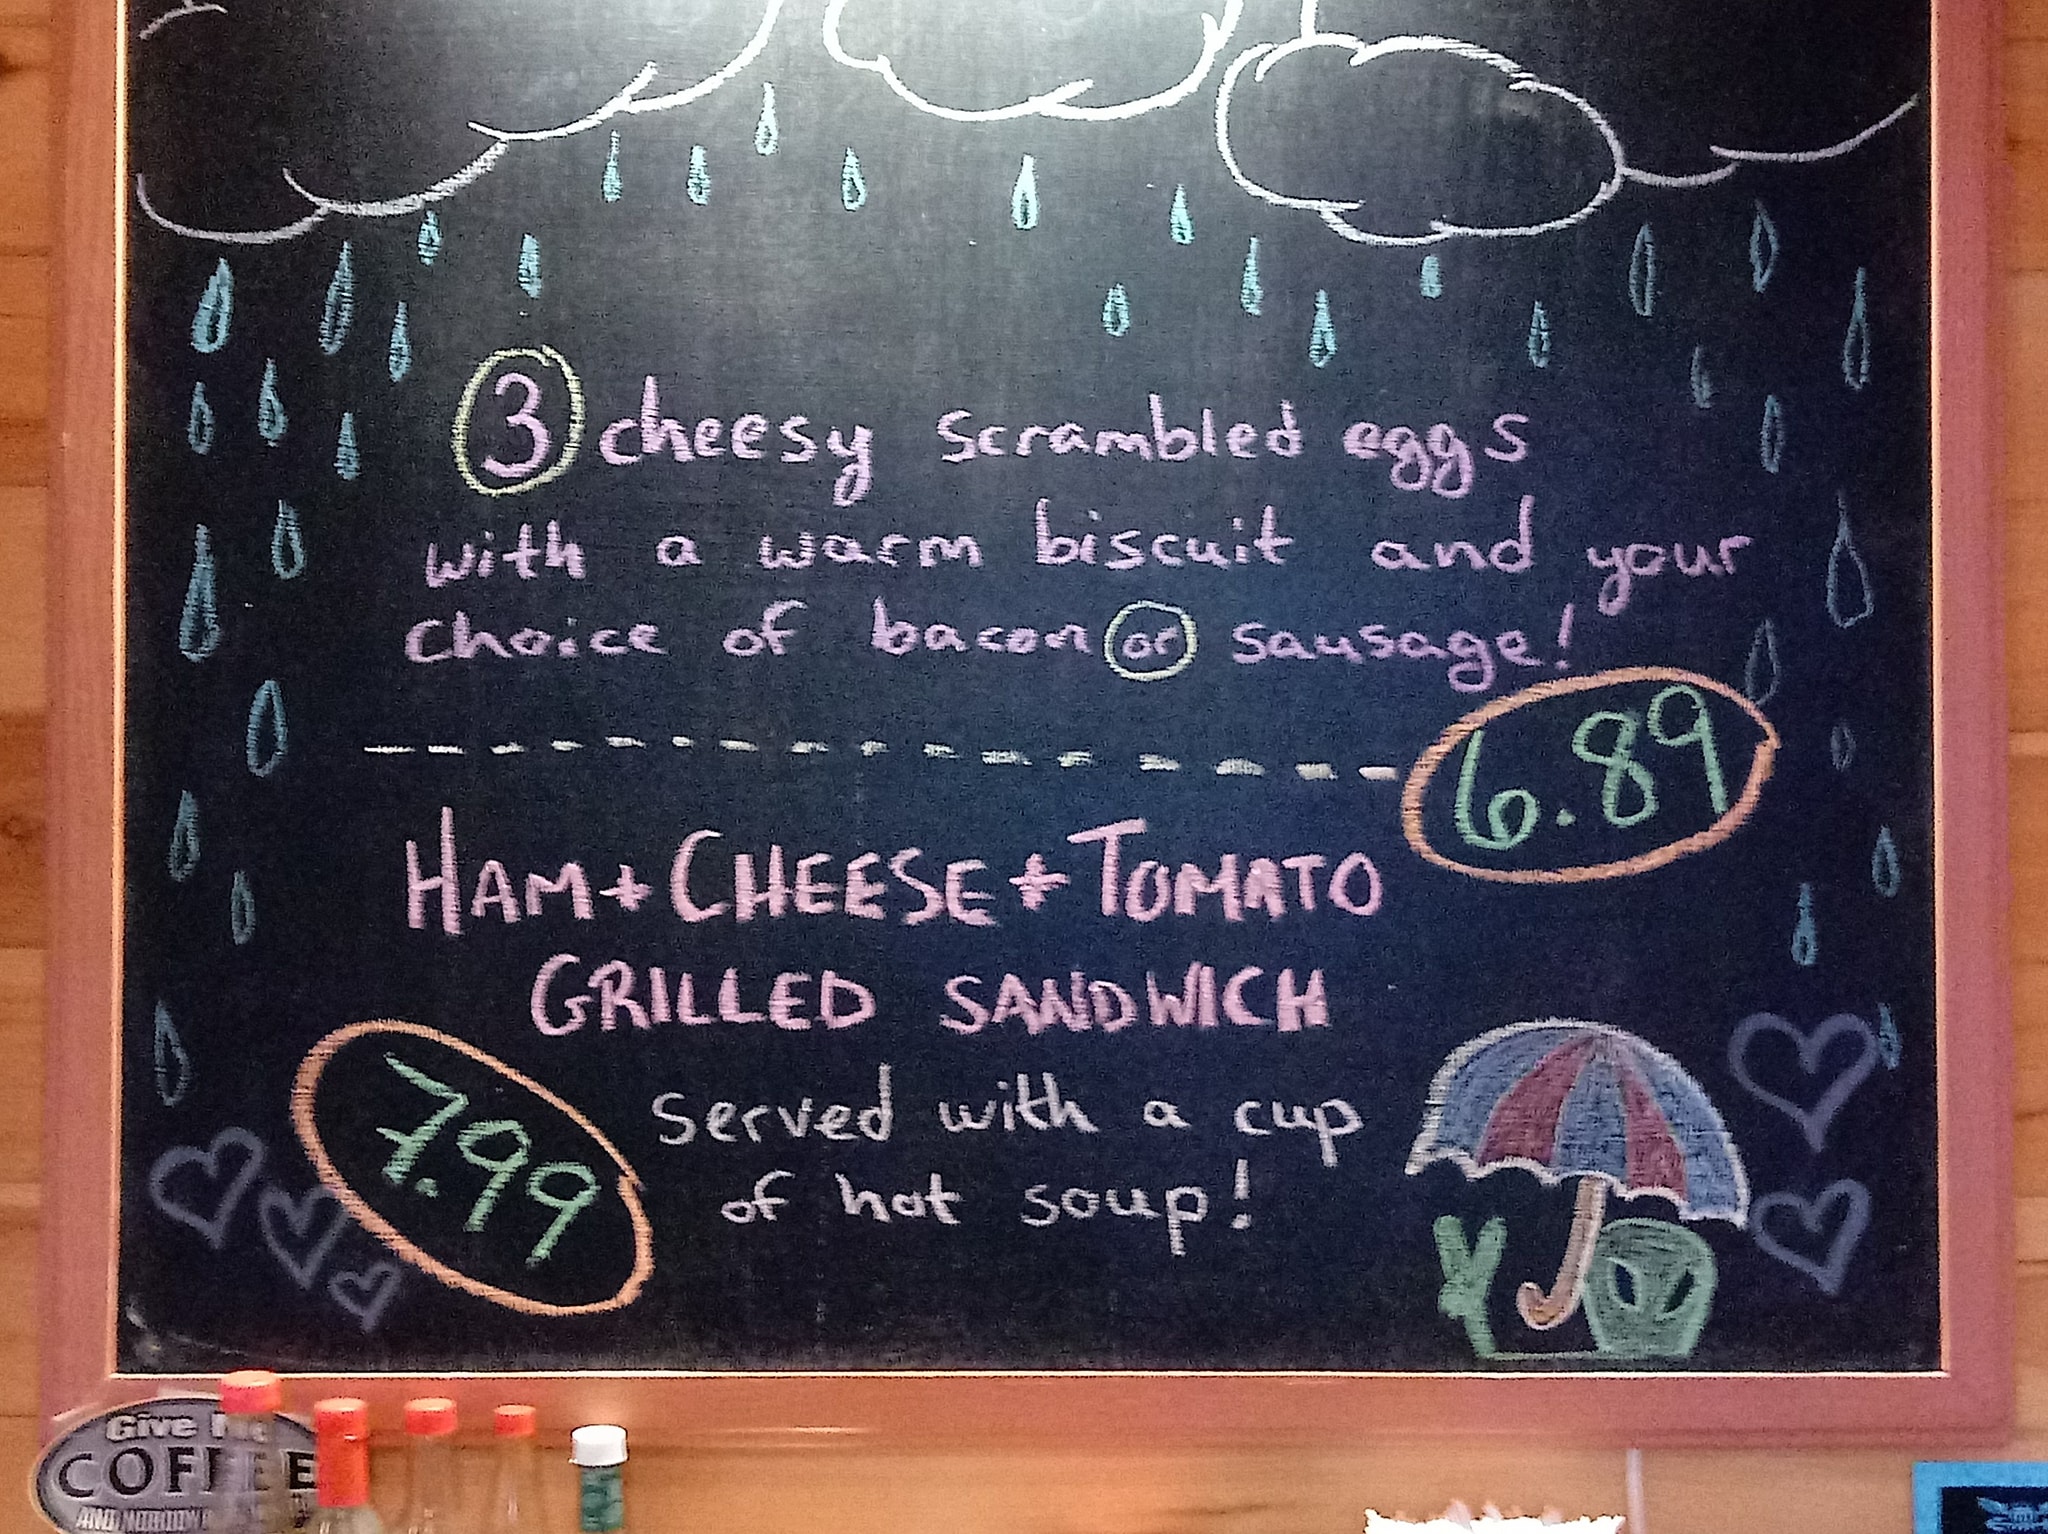 3 cheesy scrambled eggs
with a warm biscuit and your
choice of bacon or sausage!
6.89
HAM + CHEESE + TOMATO
GRILLED SANDWICH
7.99
served with a cup
of hot soup!
Give Me
COFFEE
AND NOBODY